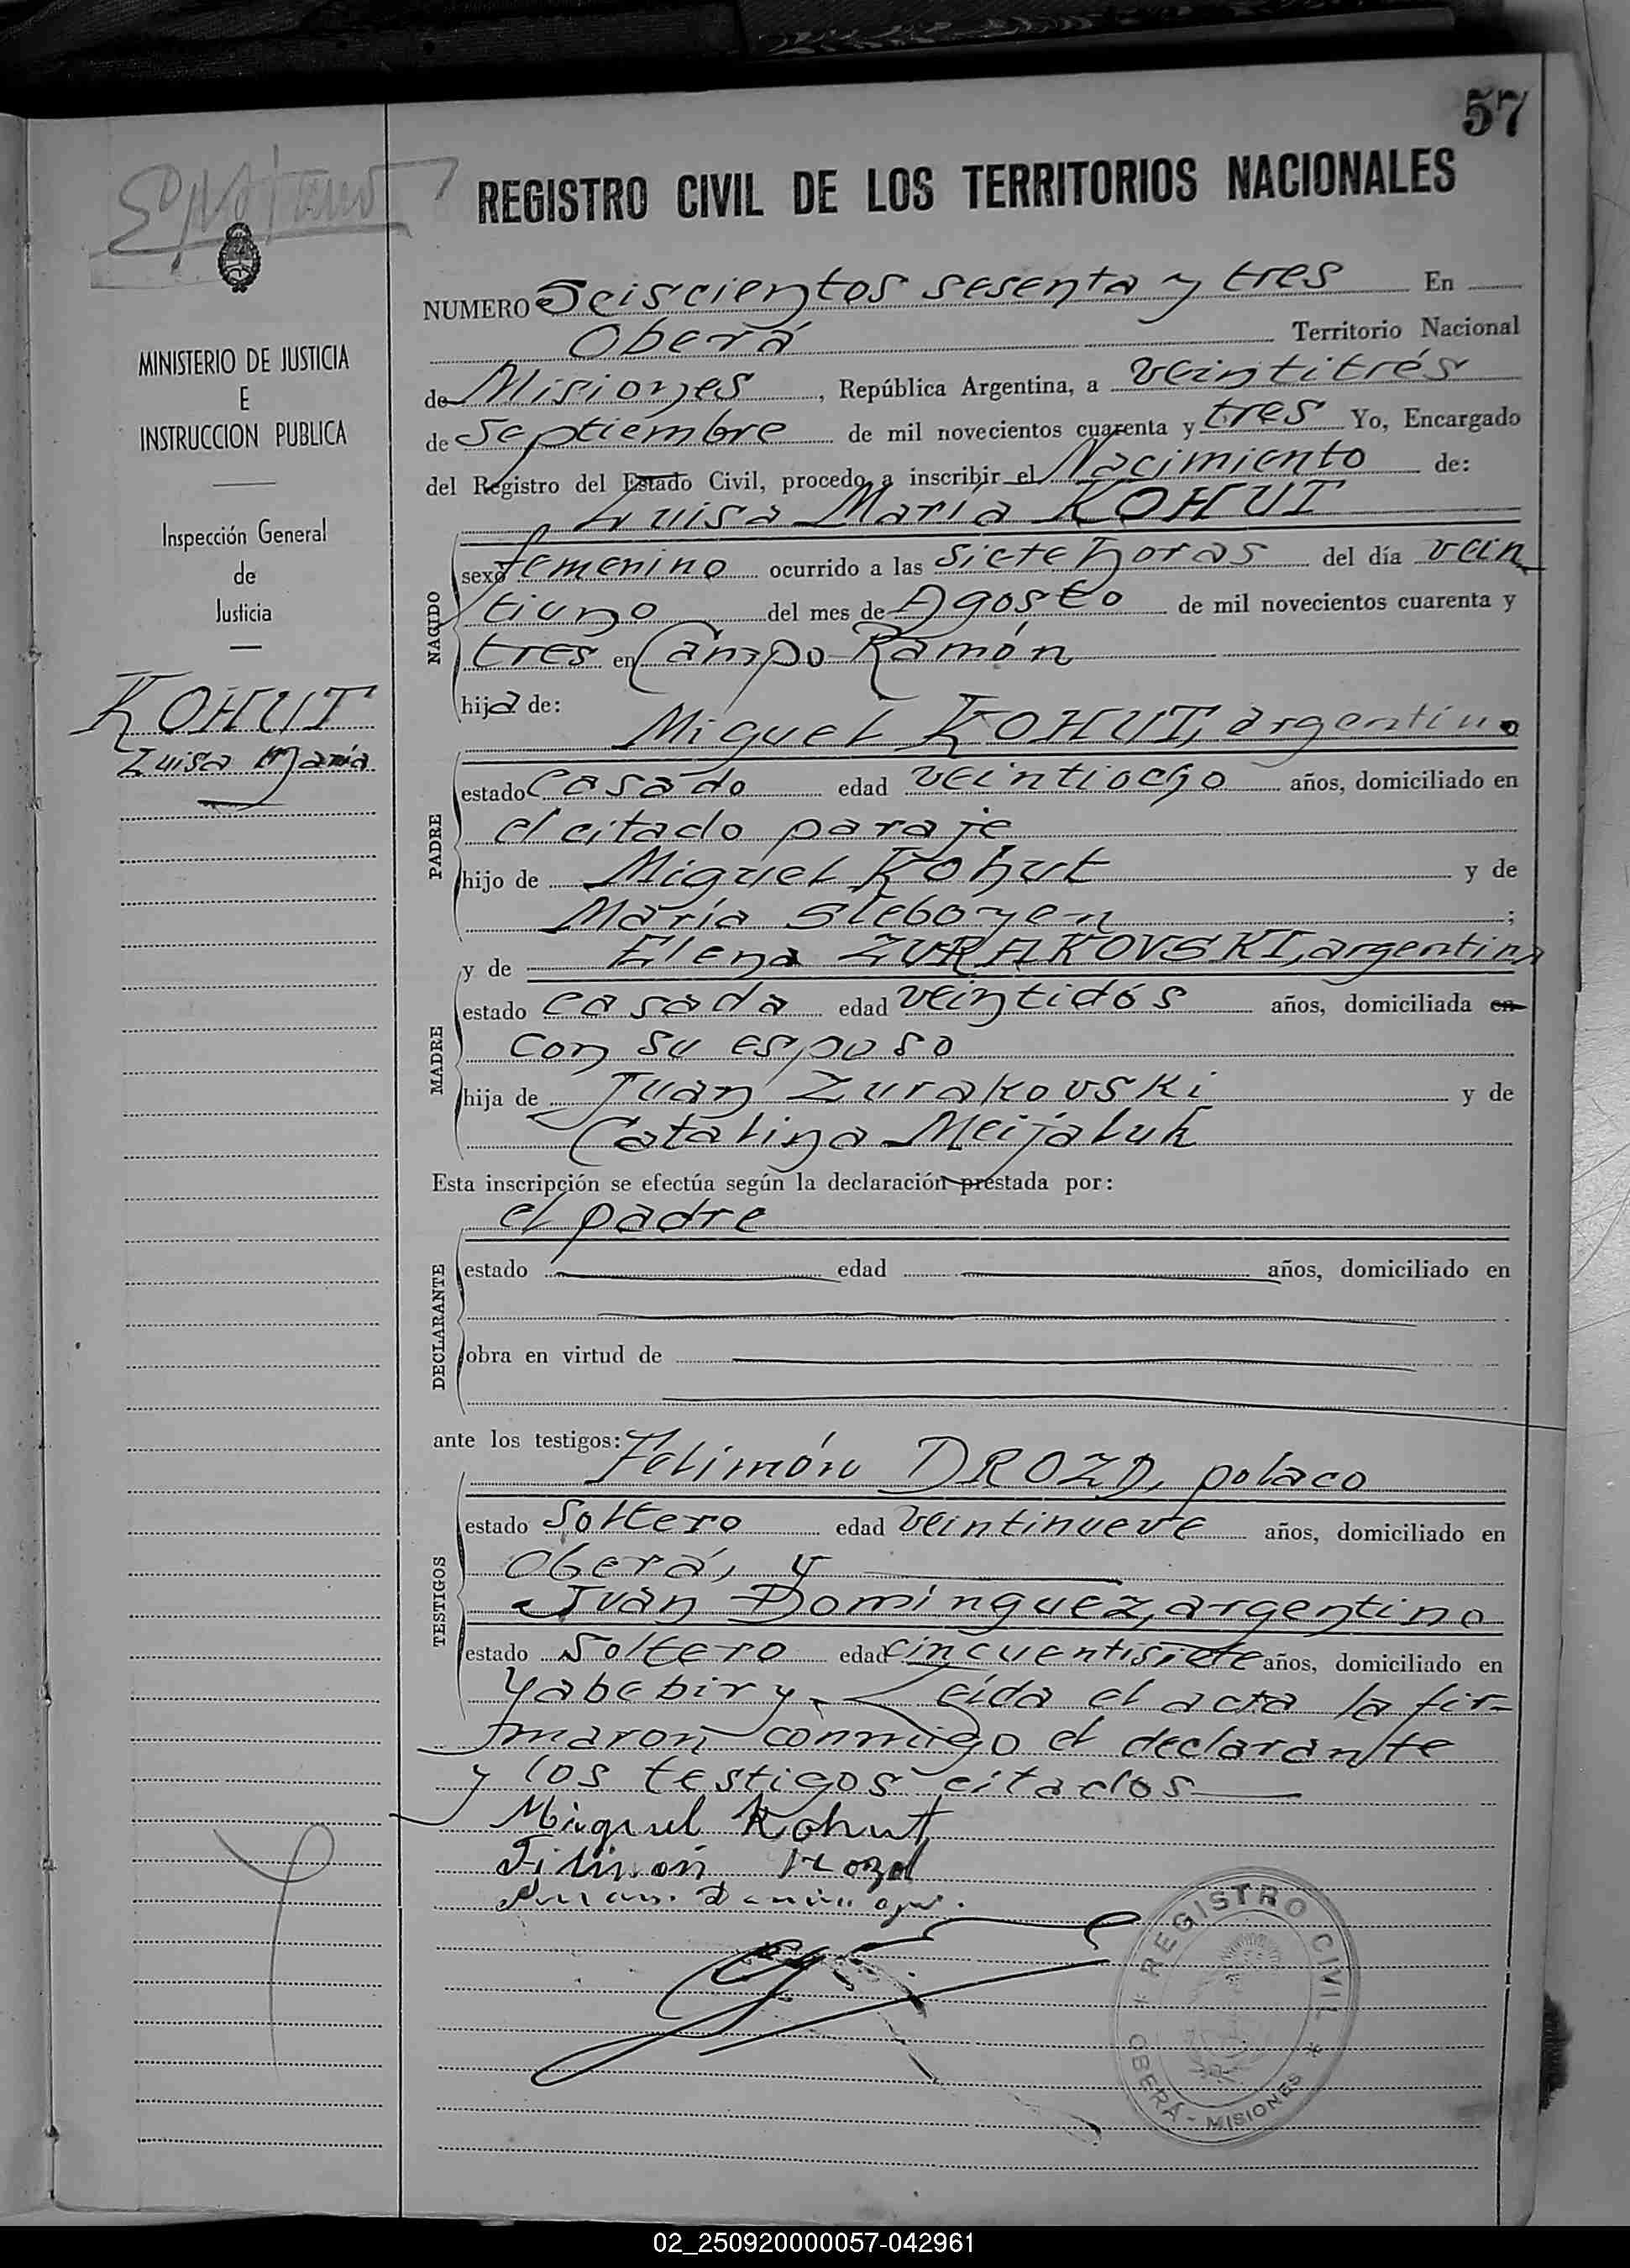 57
REGISTRO CIVIL DE LOS TERRITORIOS NACIONALES
MINISTERIO DE JUSTICIA
E
INSTRUCCION PUBLICA
Inspección General
de
Justicia
KOHUT
Luisa María
NUMERO Seiscientos sesenta y tres En
Oberá Territorio Nacional
de Misiones, República Argentina, a veintitrés
de Septiembre de mil novecientos cuarenta y tres Yo, Encargado
del Registro del Estado Civil, procedo a inscribir el Nacimiento de:
Luisa María KOHUT
NACIDO
sexo femenino ocurrido a las siete horas del día vein
tiuno del mes de Agosto de mil novecientos cuarenta y
tres en Campo Ramón
hija de:
Miguel KOHUT, argentino
PADRE
estado casado edad veintiocho años, domiciliado en
el citado paraje
hijo de Miguel Kohut y de
María Sleboyen;
y de Elena ZURAKOVSKI, argentina
MADRE
estado casada edad veintidós años, domiciliada en
con su esposo
hija de Juan Zurakovski y de
Catalina Meijaluk
Esta inscripción se efectúa según la declaración prestada por:
el padre
DECLARANTE
estado edad años, domiciliado en
obra en virtud de
ante los testigos:
Felimón DROZD, polaco
TESTIGOS
estado soltero edad veintinueve años, domiciliado en
Oberá, y
Juan Domínguez, argentino
estado soltero edad cincuentisiete años, domiciliado en
Yabebiry. Leída el acta la fir-
maron conmigo el declarante
y los testigos citados
Miguel Kohut
Filimon Drozd
REGISTRO CIVIL
OBERÁ - MISIONES
02_250920000057-042961